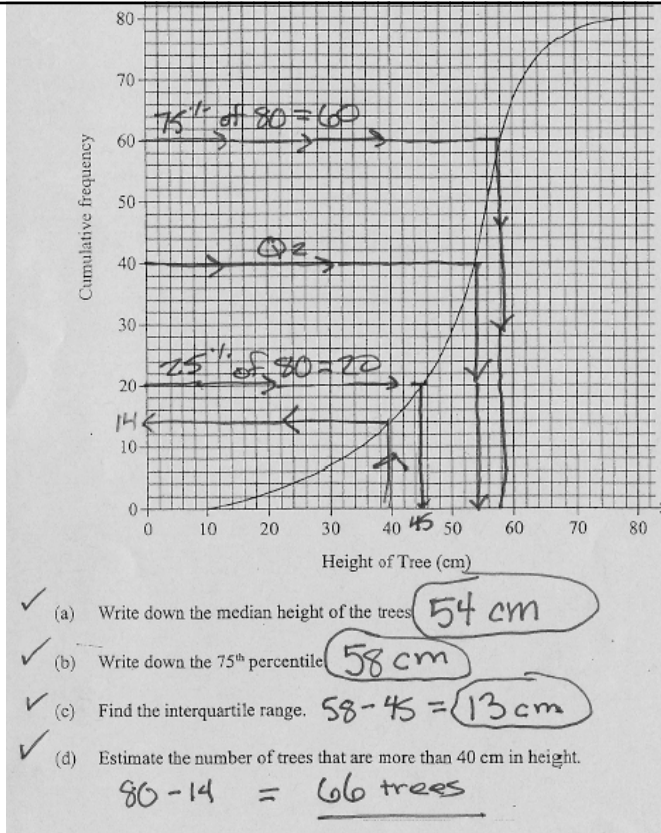 80
70
75% of 80=60
60
50
Q2
40
30
25% of 80=20
20
14
10
0
0 10 20 30 40 45 50 60 70 80
Cumulative frequency
Height of Tree (cm)
✓ (a) Write down the median height of the trees 54 cm
✓ (b) Write down the 75th percentile 58 cm
✓ (c) Find the interquartile range. 58-45 = 13 cm
✓ (d) Estimate the number of trees that are more than 40 cm in height.
80-14 = 66 trees